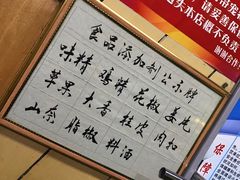 请妥善保
失本店概不负责
谢谢合作
食品添加剂公示牌
味精 鸡精 花椒 姜片
草果 大香 桂皮 肉扣
山奈 脂椒 料酒
保障